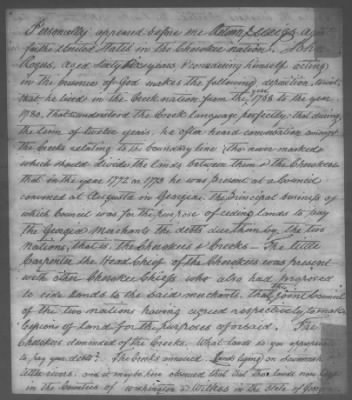 Personally appeared before me
for the United States in the Cherokee nation. John
Rogers, aged Sixty years, & considering himself acting
in the presence of God makes the following deposition, towit;
that he lived in the Creek nation from the year 1768 to the year
1780, that understood the Creek language perfectly; that during
the term of twelve years, he often heard conversation amongst
the Creeks relating to the boundary line; the river marked
which should divide the lands between them & the Cherokees
that in the year 1772 or 1773 he was present at a Council
convened at Augusta in Georgia. The principal business of
which Council was for the purpose of ceding lands to pay
the Georgia Merchants the debts due them by the two
nations, that is, the Cherokees & Creeks — The little
Carpenter the Head Chief of the Cherokees was present
with other Cherokee Chiefs who also had proposed
to cede lands to the said merchants, that the joint Council
of the two nations having agreed respectively to make
Cessions of land for the purposes aforsaid. The
Cherokees demanded of the Creeks. What lands is you
to pay your debts? The Creeks answered. Lands lying on Savannah &
rivers. and it maybe here observed that this lands now lays
in the Counties of Washington & Wilkes in the State of Georgia